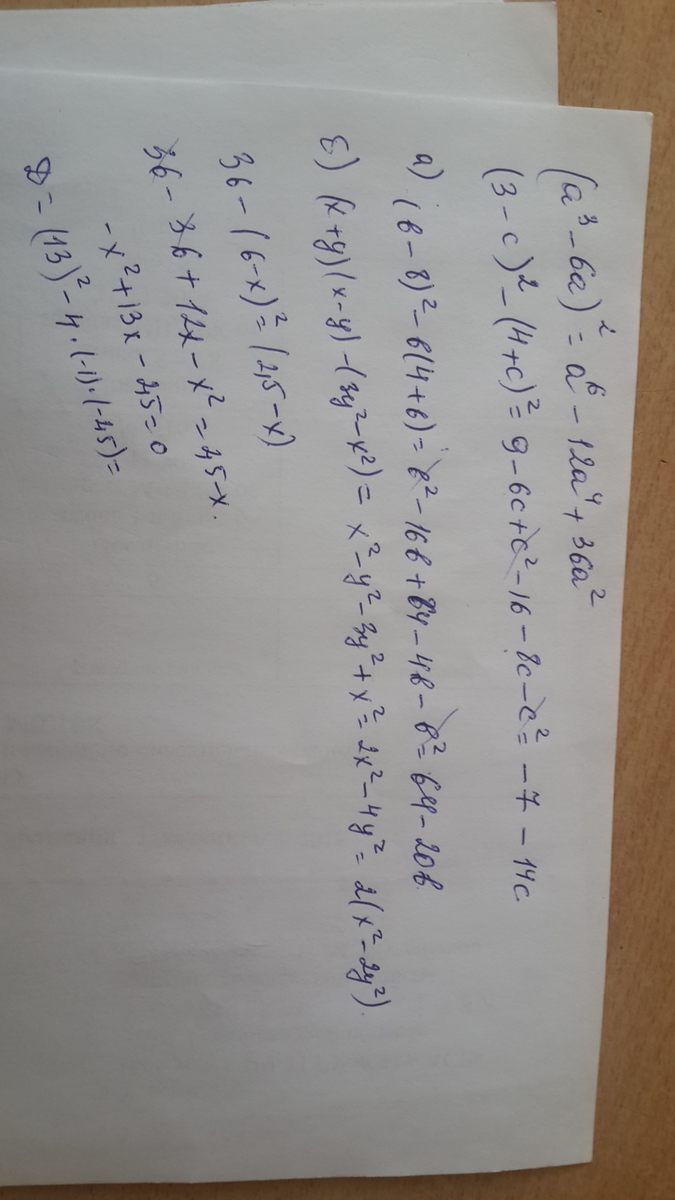 (a³ - 6a)² = a⁶ - 12a⁴ + 36a²
(3 - c)² - (4+c)² = 9 - 6c + c² - 16 - 8c - c² = -7 - 14c
а) (в - 8)² - в(4+в) = в² - 16в + 64 - 4в - в² = 64 - 20в
б) (x+y)(x-y) - (3y² - x²) = x² - y² - 3y² + x² = 2x² - 4y² = 2(x² - 2y²).
36 - (6-x)² = (2,5-x)
36 - 36 + 12x - x² = 2,5-x.
-x² + 13x - 2,5 = 0
D = (13)² - 4·(-1)·(-2,5) =